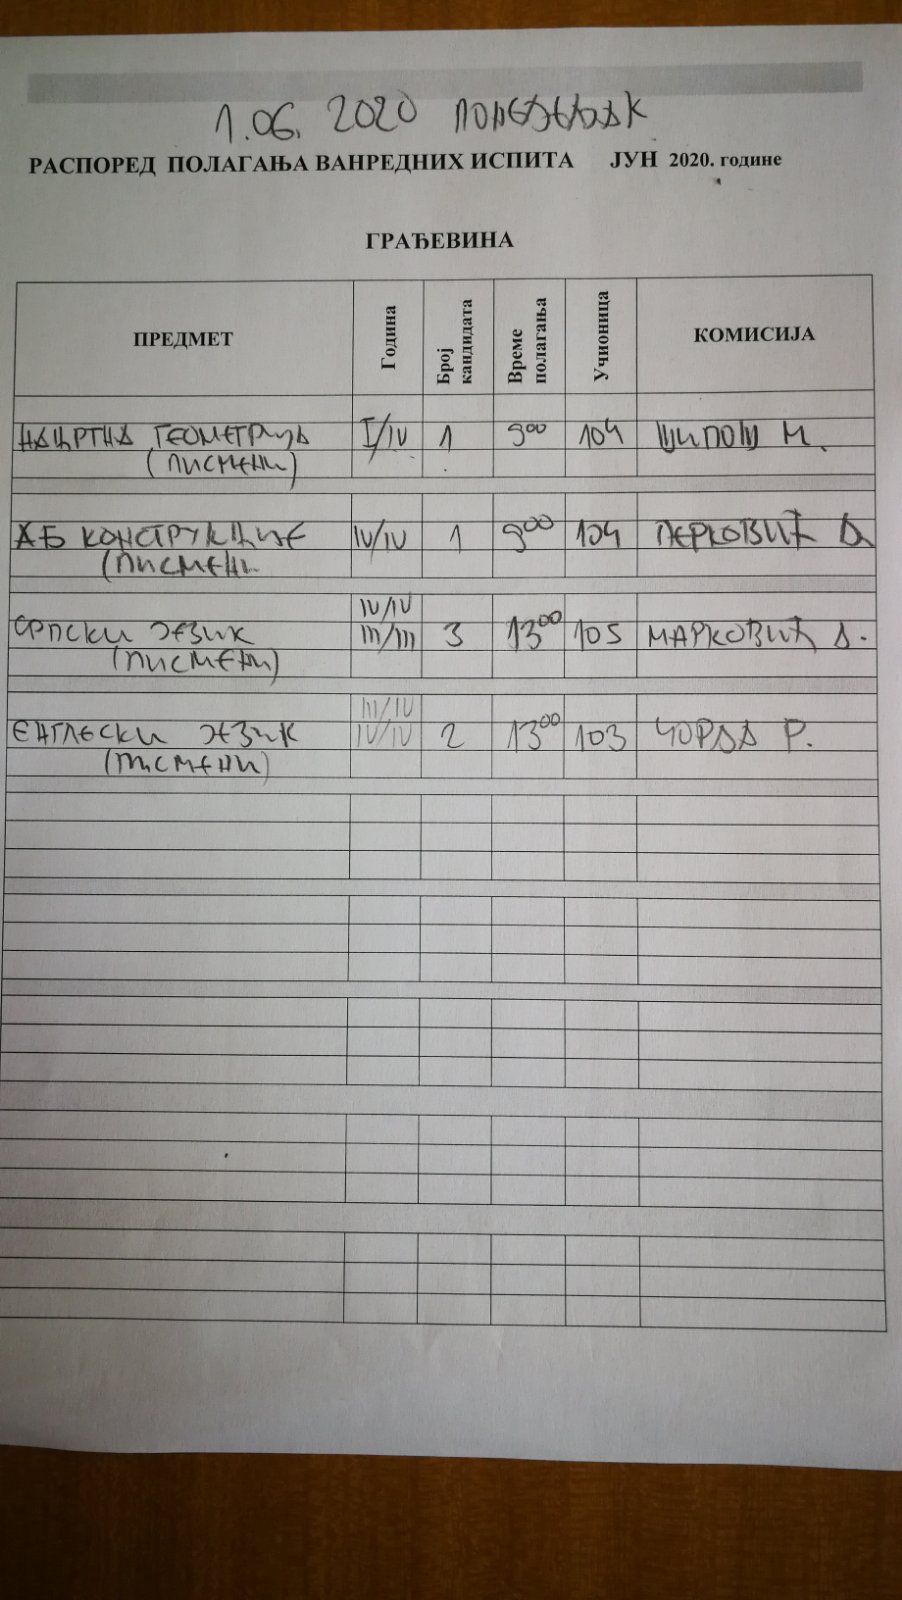 1.06. 2020 ПОНЕДЕЉАК
РАСПОРЕД ПОЛАГАЊА ВАНРЕДНИХ ИСПИТА ЈУН 2020. године
ГРАЂЕВИНА
ПРЕДМЕТ Година Број кандидата Време полагања Учионица КОМИСИЈА
НАЦРТНА ГЕОМЕТРИЈА I/IV 1 9⁰⁰ 104 ШИПОШ М.
(ПИСМЕНИ)
АБ КОНСТРУКЦИЈЕ IV/IV 1 9⁰⁰ 104 ПЕРКОВИЋ
(ПИСМЕНИ
IV/IV
СРПСКИ ЈЕЗИК III/III 3 13⁰⁰ 105 МАРКОВИЋ Д.
(ПИСМЕНИ)
III/IV
ЕНГЛЕСКИ ЈЕЗИК IV/IV 2 13⁰⁰ 103 ЧОРДА Р.
(ПИСМЕНИ)